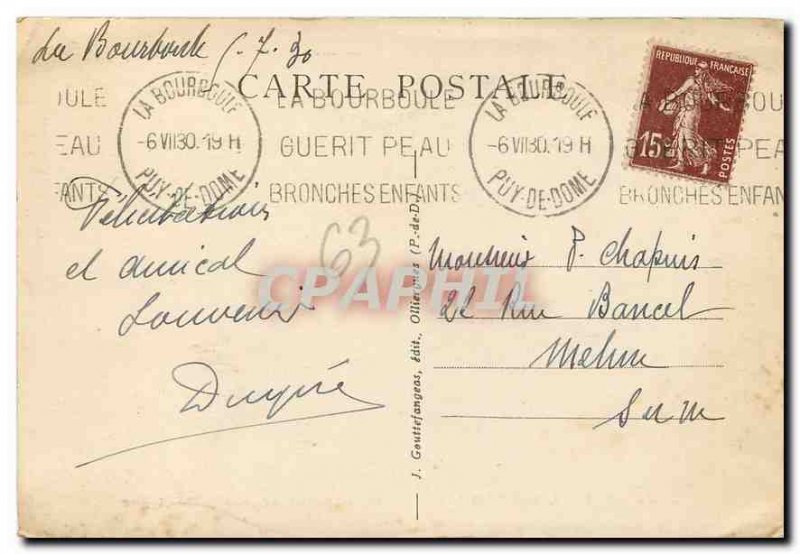 La Bourboule 6.7.30
CARTE POSTALE
OULE
EAU
FANTS
LA BOURBOULE
-6 VII30.19 H
PUY-DE-DOME
LA BOURBOULE
GUERIT PEAU
BRONCHES ENFANTS
LA BOURBOULE
-6 VII30.19 H
PUY-DE-DOME
LA BOU
GUERIT PEA
BRONCHES ENFAN
REPUBLIQUE FRANCAISE
15c
POSTES
Félicitations
et amical
souvenir
63
CPAPHIL
J. Gouttefangeas, édit., Ollierques (P.-de-D.)
Monsieur P. Chapuis
22 Rue Bancel
Melun
S et M